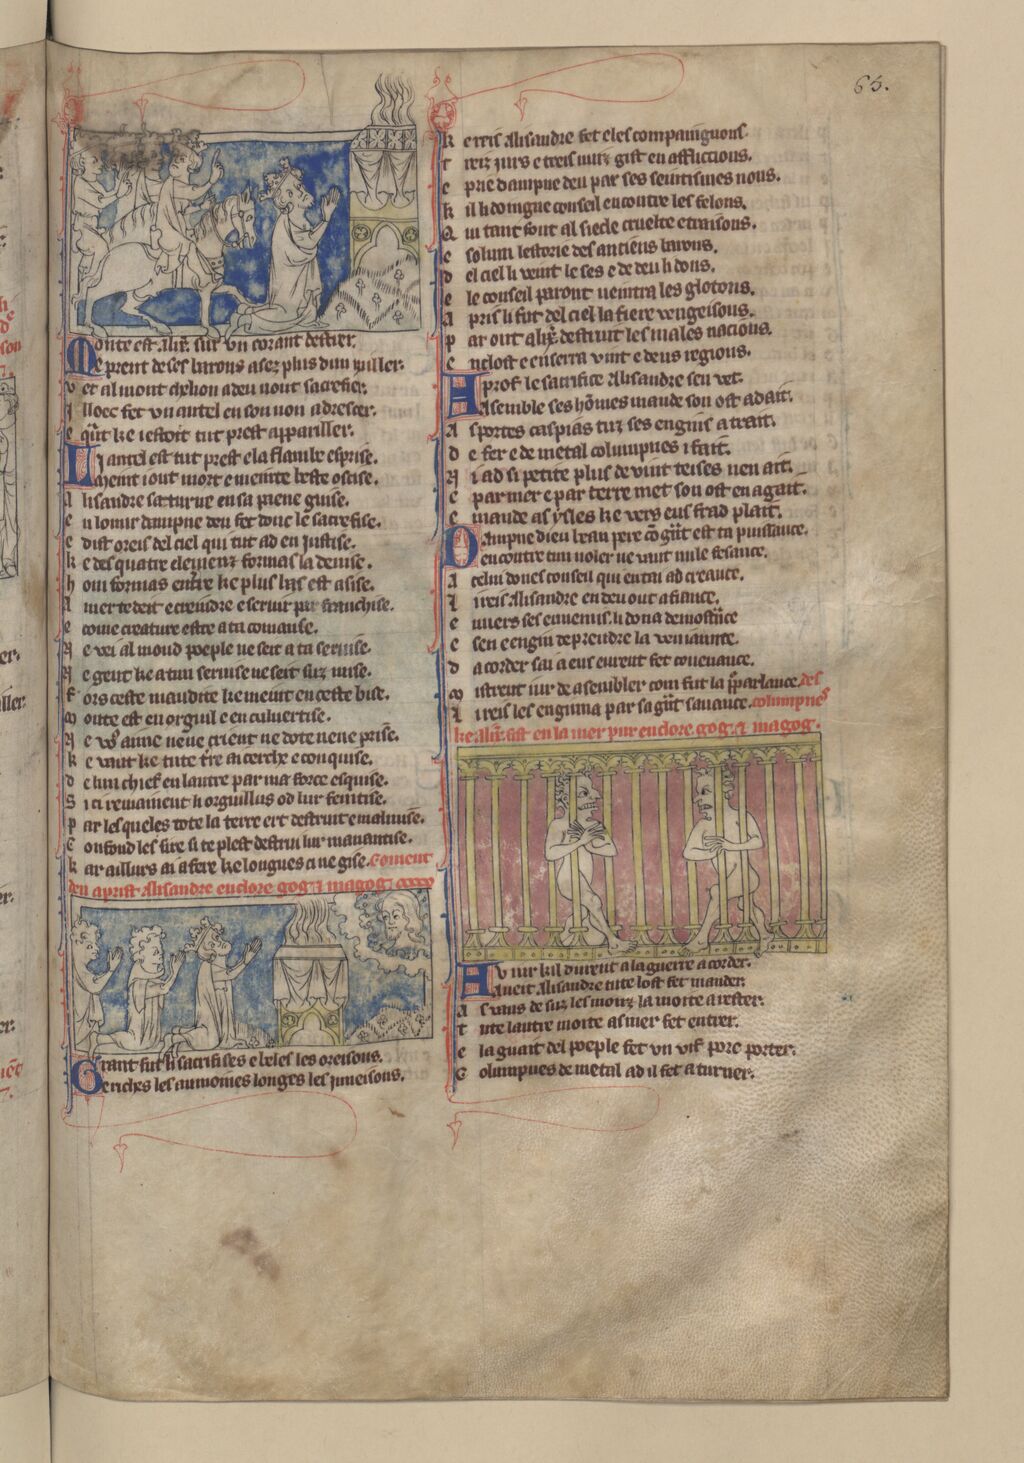 65.
Monte est Alix. sur un corant destrer.
E prent de ses barons asez plus d'un miller.
v et al mont chelron a deu vout sacrefier.
I lloec fet un autel en son non adrescer.
e quant ke i estoit tut prest appariller.
Li autel est tut prest e la flambe esprise.
A lisandre saturne en sa piene guise.
e n lonur dampne deu fet donc le sacrefise.
e dist oreis del ciel qui tut ad en justise.
k e des quatre elemenz formas la devise.
h om formas entre ke plus bas est asise.
A mer te deit e creindre e servir par franchise.
e come creature estre a ta comanse.
N e vei al mond poeple ne seit a ta servise.
N e gent ke a tun servise ne seit suz mise.
f ors ceste maudite ke meint en ceste bise.
m onte est en orguil e en culvertise.
k e vaut ke tute terre ai cerche e conquise.
d e lun chief en lautre par ma force esquise.
S i ci remainent li orguillus od lur feintise.
p ar les queles tote la terre ert destruite e malmise.
C onfond les sire si te plest destrui lur manantise.
k ar aillurs ai a fere ke longues ci ne gise. Coment
deu aprist Alisandre enclore gog & magog
Grant fut li sacrifises e beles les oreisons.
E riches les aumones longes les juneisons.
k e reis Alisandre fet e les compaignuns.
t reiz jurs e treis nuiz gist en afflictions.
e prie dampne deu par ses seintismes nons.
k il li doingne conseil encontre les felons.
Q ui tant font al siecle cruelte e traisons.
e solum lestorie des antiens barons.
d el ciel li vent le ses e de deu li dons.
e le conseil paront veintra les glotons.
A pris li fut del ciel la fiere vengeisons.
p ar ont Alix. destruit les males nacions.
e nclost e enserra vint e deus regions.
Aprof le sacrifice Alisandre sen vet.
Asemble ses homes mande son ost adait.
A sportes caspias tuz ses engins a trait.
d e fer e de metal columpnes i fait.
N i ad si petite plus de vint teises nen ait.
e par mer e par terre met son ost en agait.
e mande as ysles ke vers eus frad plait.
Dampne dieu beau pere com grant est ta puissance.
Encontre tun voler ne vaut nule fesance.
A celui dones conseil qui en tai ad creance.
L i reis Alisandre en deu out afiance.
e nvers ses enemis li dona demostrance
e sen e engin de prendre la venjaunce.
d acorder sai a eus eurent fet covenance.
m istrent jur de asembler com fut la parlance. des
L i reis les engigna par sa grant savance. columpnes
ke Alix. fist en la mer pur enclore gog & magog.
Au jur kil durent a la guerre acorder.
Aveit Alisandre tute lost fet mander.
t ute lautre moite as mer fet entrer.
e la guait del poeple fet un vif pore porter.
C olumpnes de metal ad il fet aturner.